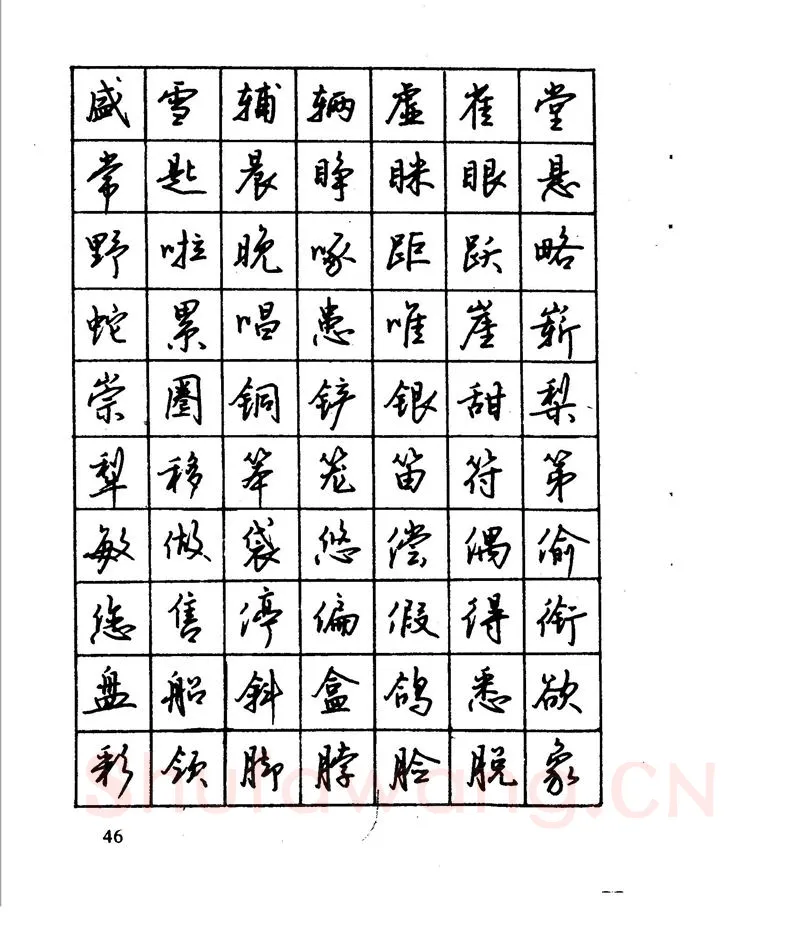 盛雪辅辆虚雀堂
常匙晨睁眯眼悬
野啦晚啄距跃略
蛇累唱患唯崖崭
崇圈铜铲银甜梨
犁移笨笼笛符第
敏做袋悠偿偶偷
您售停偏假得衔
盘船斜盒鸽悉欲
彩领脚脖脸脱象
Shufawang.CN
46